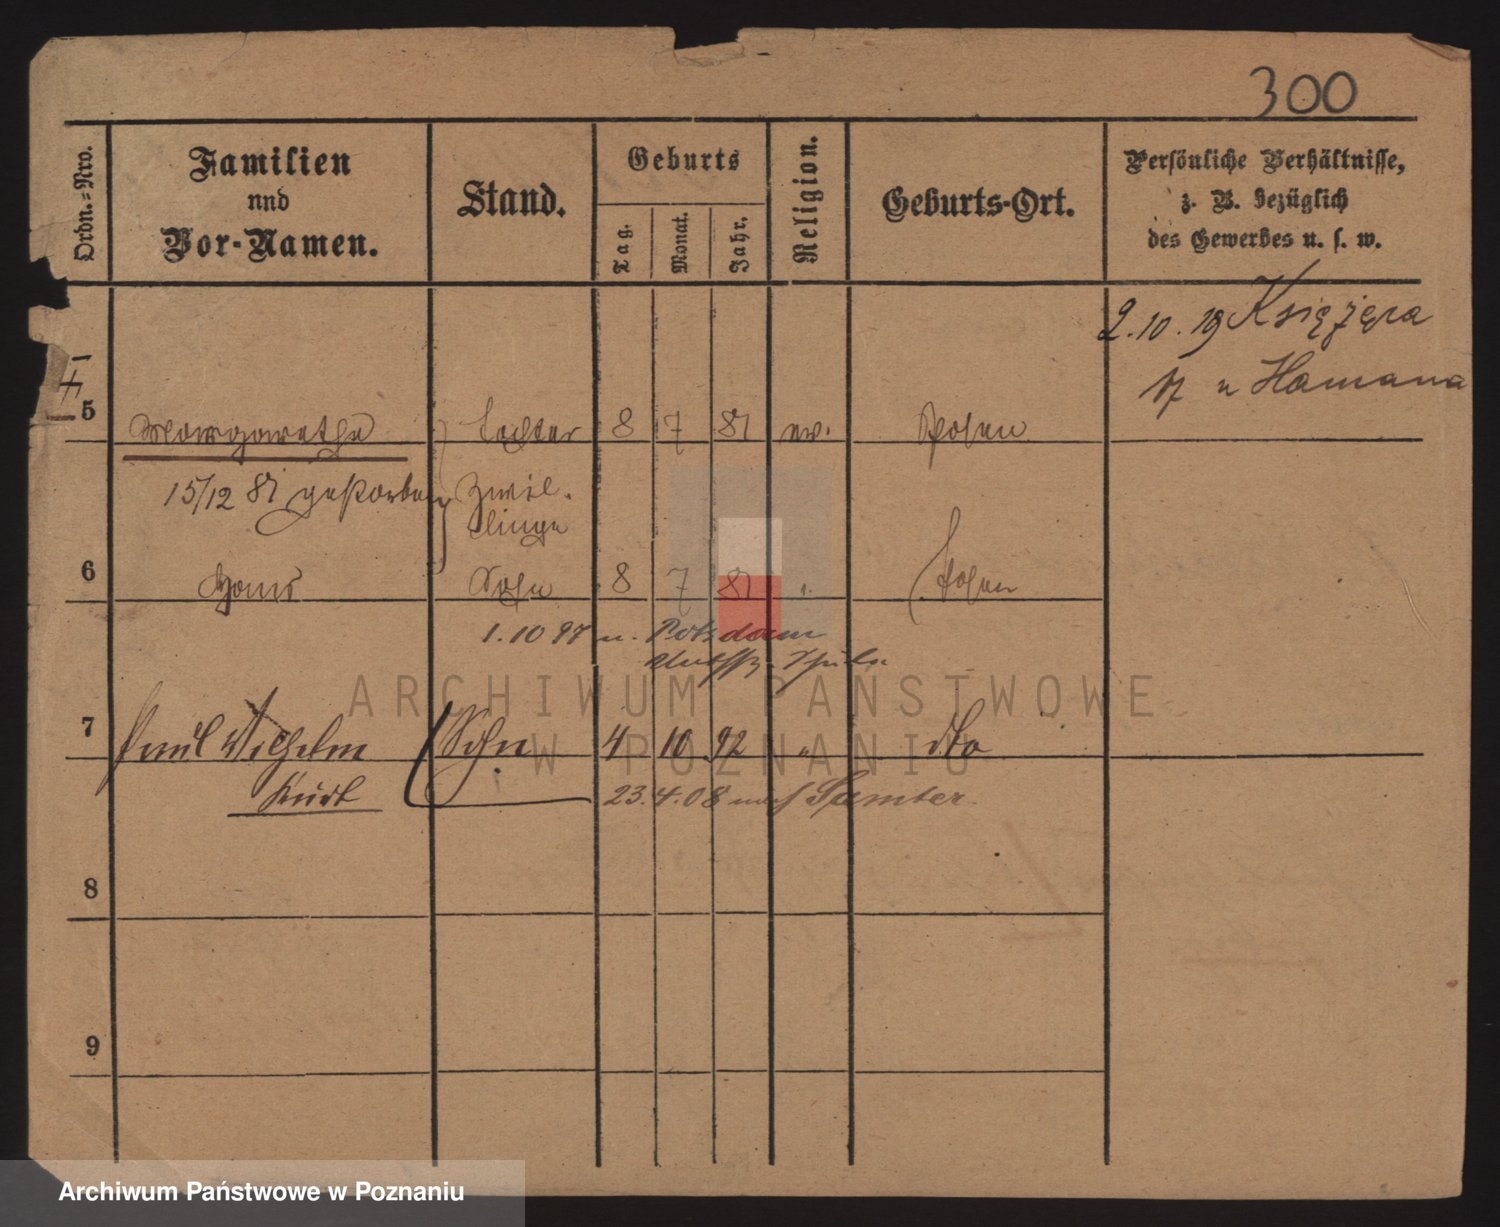 300
Ordn.=Nro.
Familien
nnd
Vor-Namen.
Stand.
Geburts
Tag.
Monat.
Jahr.
Religion.
Geburts-Ort.
Persönliche Verhältnisse,
z. B. bezüglich
des Gewerbes u. s. w.
2.10.19 Księżęca
17 u Hamana
5 Margarethe Tochter 8 7 81 ev. Posen
15/12 81 gestorben Zwil-
linge
6 Hans Sohn 8 7 81 " Posen
1.10 97 n. Potsdam
Schule
7 Emil Wilhelm Sohn 4 10 92 " dto
Kurt 23.4.08 nach Samter
8
9
ARCHIWUM PAŃSTWOWE
W POZNANIU
Archiwum Państwowe w Poznaniu